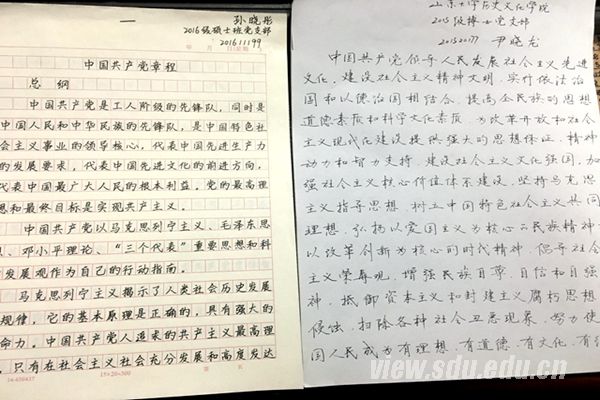 一
孙晓彤
2016级硕士班党支部
201611199
年 月
中国共产党章程
总 纲
中国共产党是工人阶级的先锋队，同时是
中国人民和中华民族的先锋队，是中国特色社
会主义事业的领导核心，代表中国先进生产力
的发展要求，代表中国先进文化的前进方向，
代表中国最广大人民的根本利益。党的最高理
想和最终目标是实现共产主义。
中国共产党以马克思列宁主义、毛泽东思
、邓小平理论、“三个代表”重要思想和科
发展观作为自己的行动指南。
马克思列宁主义揭示了人类社会历史发展
规律，它的基本原理是正确的，具有强大的
命力。中国共产党人追求的共产主义最高理
，只有在社会主义社会充分发展和高度发达
15×20=300
山东大学历史文化学院
2015级博士党支部
尹晓龙
中国共产党领导人民发展社会主义先进
文化，建设社会主义精神文明，实行依法治
国和以德治国相结合，提高全民族的思想
道德素质和科学文化素质，为改革开放和社会
主义现代化建设提供强大的思想保证、精神
动力和智力支持，建设社会主义文化强国。加
强社会主义核心价值体系建设，坚持马克思
主义指导思想，树立中国特色社会主义共同
理想，弘扬以爱国主义为核心的民族精神
以改革创新为核心的时代精神，倡导社会
主义荣辱观，增强民族自尊、自信和自强
神，抵御资本主义和封建主义腐朽思想
侵蚀，扫除各种社会丑恶现象，努力使
国人民成为有理想、有道德、有文化、有
view.sdu.edu.cn